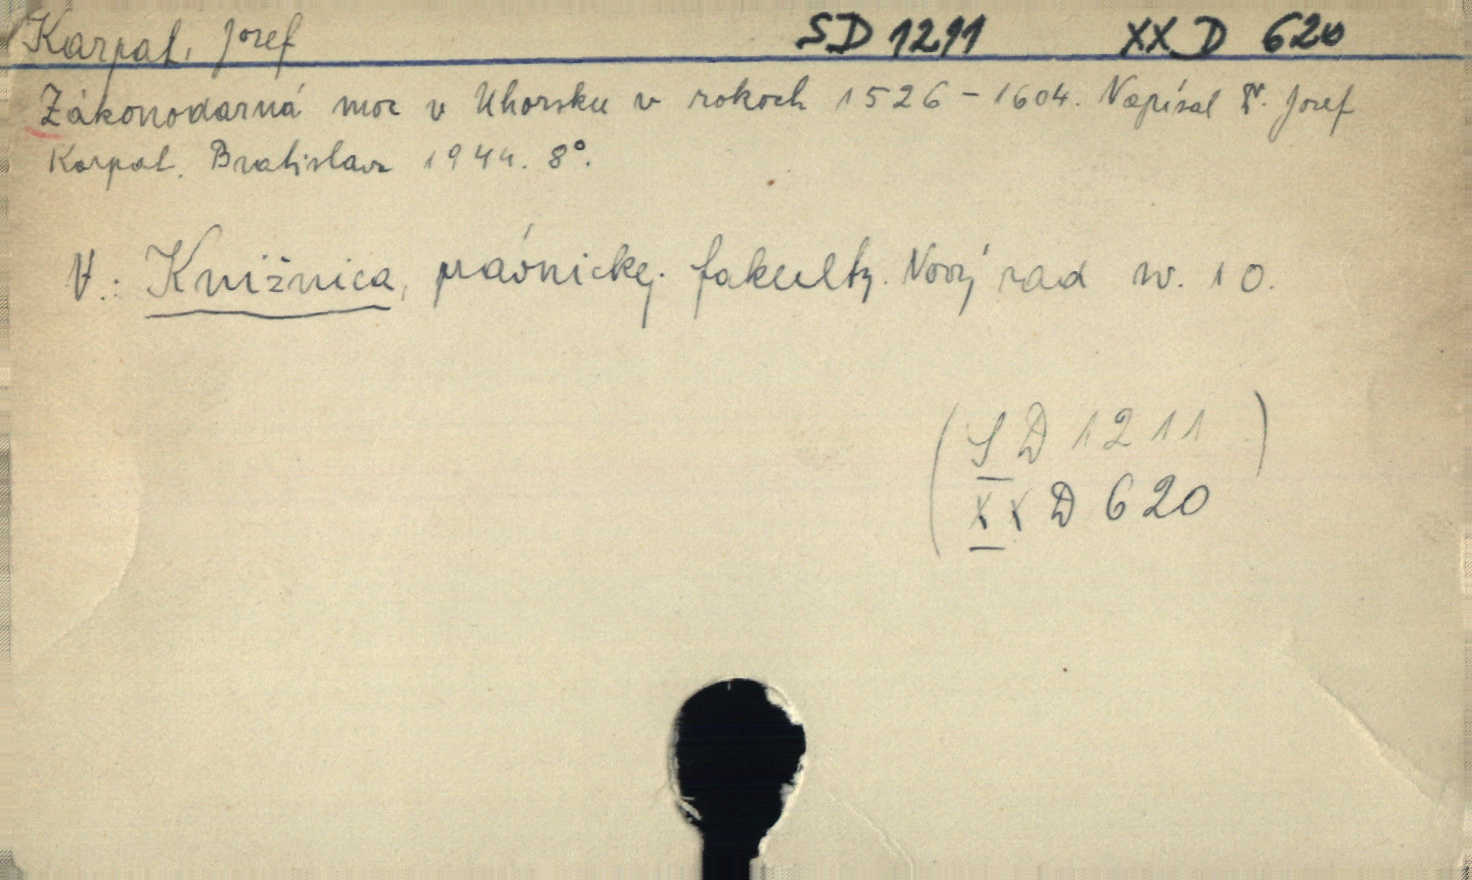 Karpat, Jozef SD 1211 XX D 620
Zákonodarná moc v Uhorsku v rokoch 1526-1604. Napísal Dr. Jozef
Karpat. Bratislava 1944. 8°.
V.: Knižnica, právnickej fakulty. Nový rad sv. 10.
(SD 1211)
XXD 620